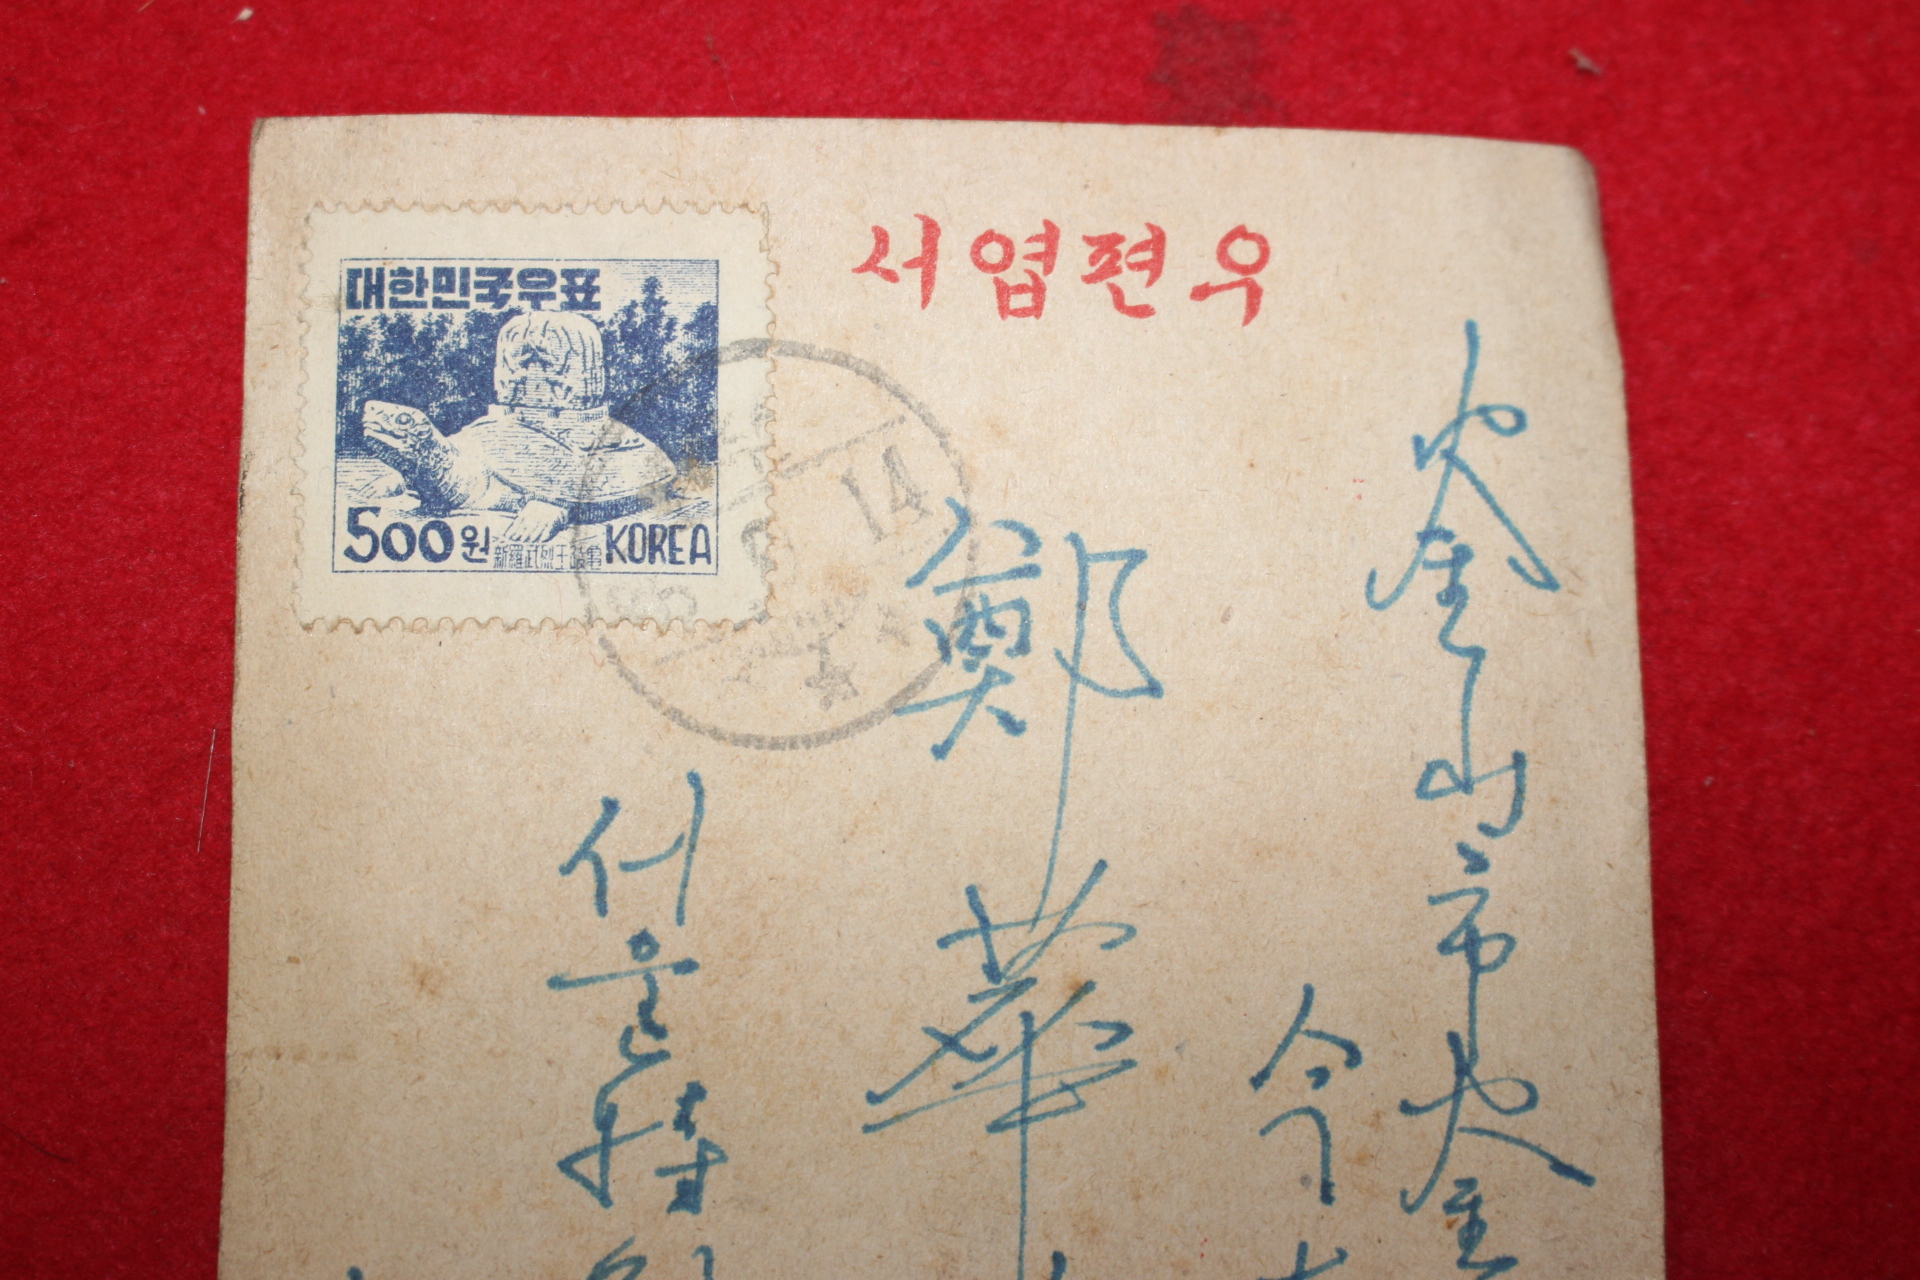 대한민국우표
500원 新羅武烈王陵龜 KOREA
우편엽서
14
釜山市釜
今
鄭華
서울特別